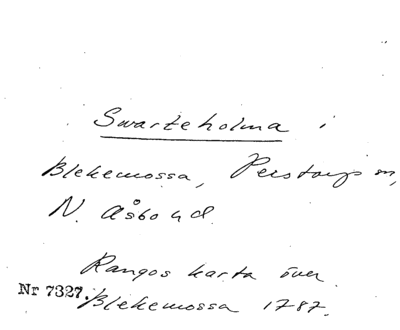 Swarteholma i
Blekemossa, Perstorps sn,
N. Åsbo hd.
Rangos karta över
Nr 7327. Blekemossa 1787.